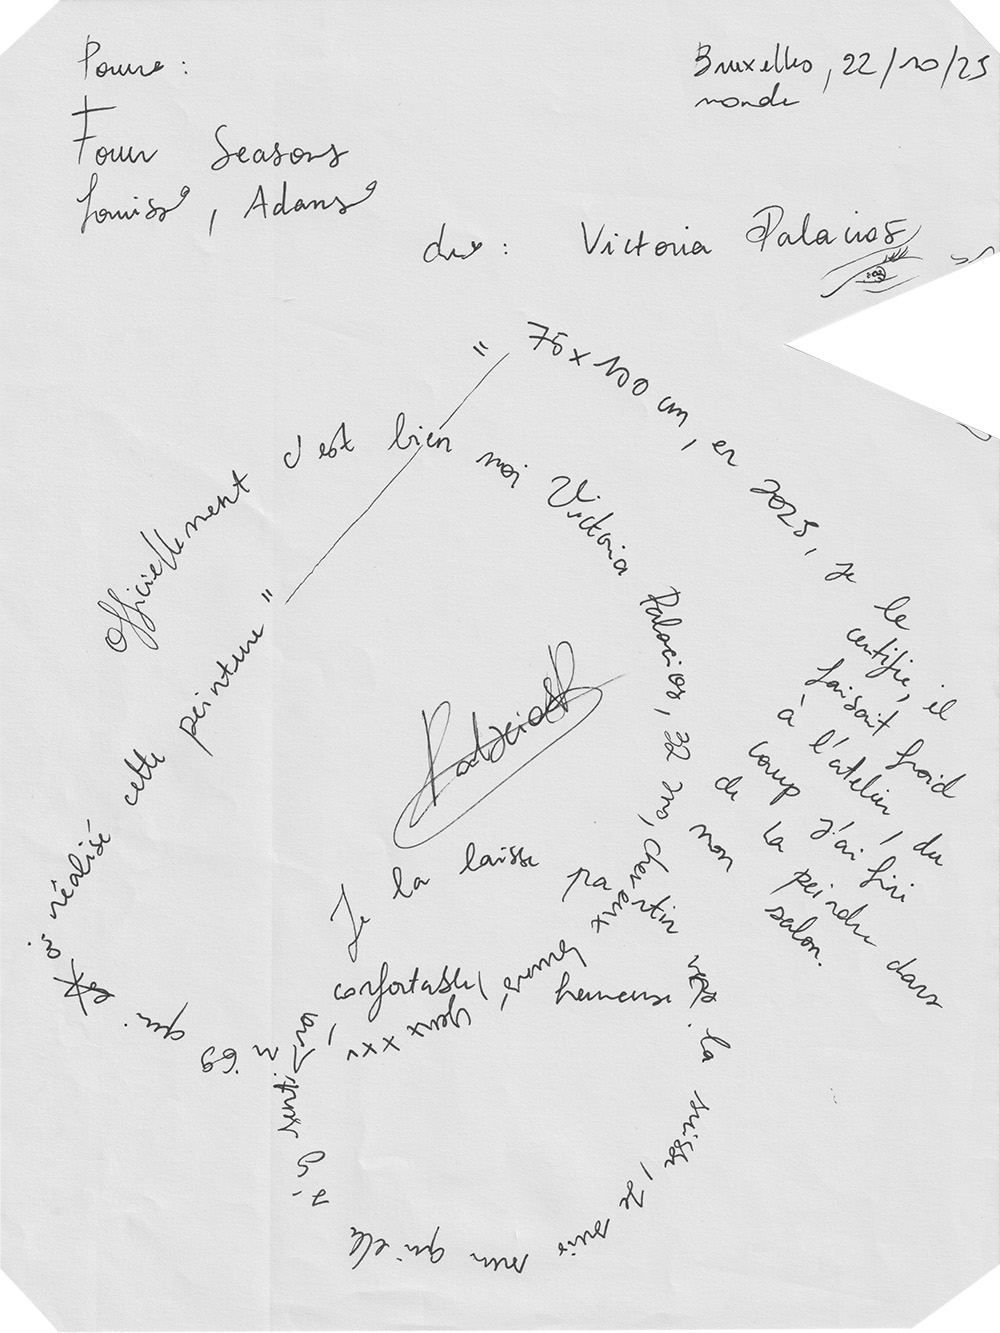 Pour :
Bruxelles, 22/10/25
monde
Four Seasons
Louise, Adams
de : Victoria Palacios
Officiellement c'est bien moi Victoria Palacios, 32 ans, cheveux bruns, yeux xxx
1 m 69 qui
a réalisé cette peinture"
" 75 x 100 cm, en 2025, je le
certifie, il
faisait froid
à l'atelier, du
coup j'ai fini
de la peindre dans
mon salon.
Palacios
Je la laisse partir vers la suisse, je suis sur qu'elle s'y sentira,
confortable, heureuse